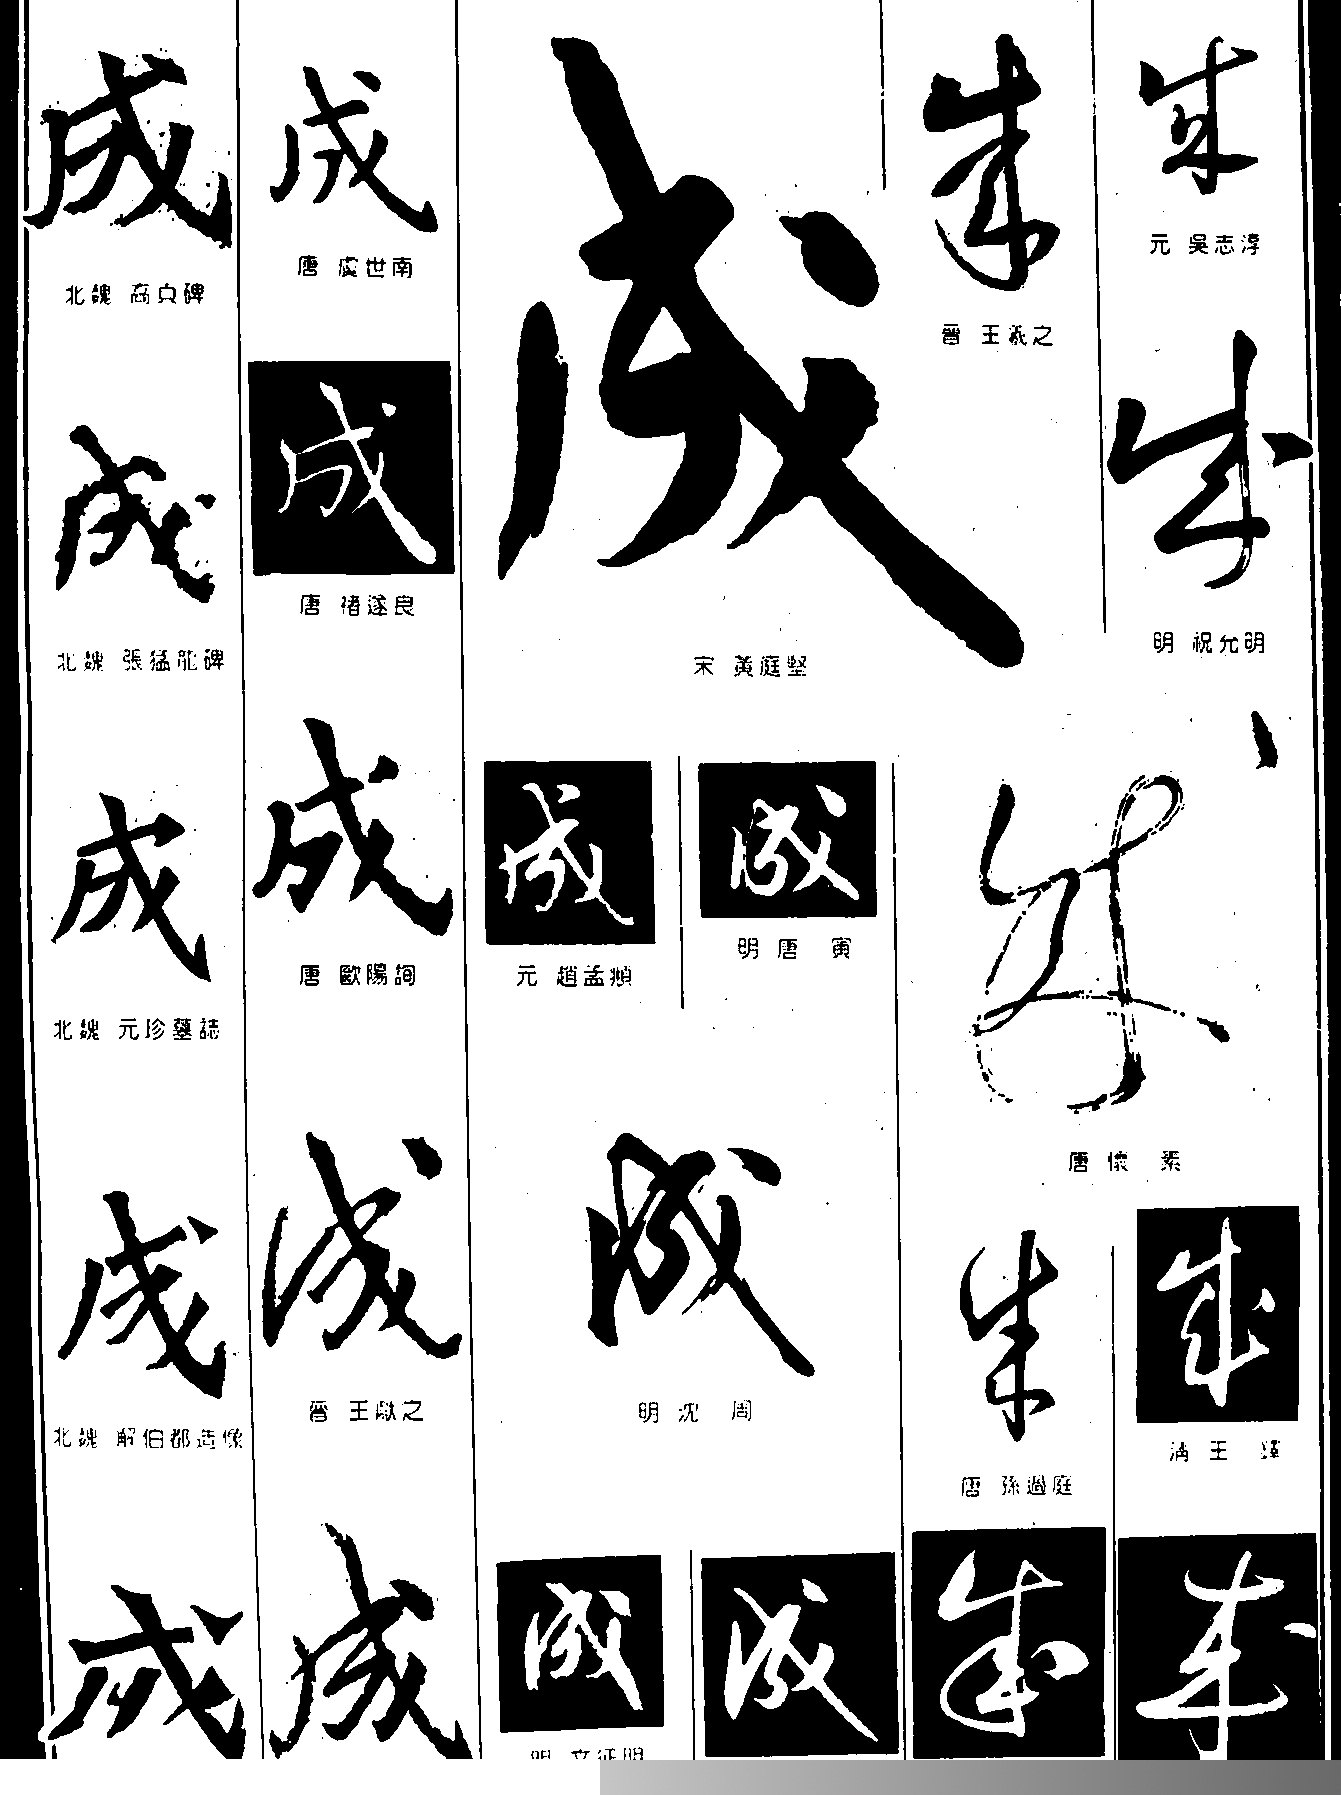 成
北魏 高貞碑
成
北魏 張猛龍碑
成
北魏 元珍墓誌
成
北魏 解伯都造像
成
成
唐 虞世南
成
唐 褚遂良
成
唐 歐陽詢
成
晉 王獻之
成
成
宋 黃庭堅
成
元 趙孟頫
成
明 唐 寅
成
明 沈 周
成
明 文征明
成
成
晉 王羲之
成
元 吳志淳
成
明 祝允明
成
唐 懷 素
成
唐 孫過庭
成
清 王 鐸
成
成